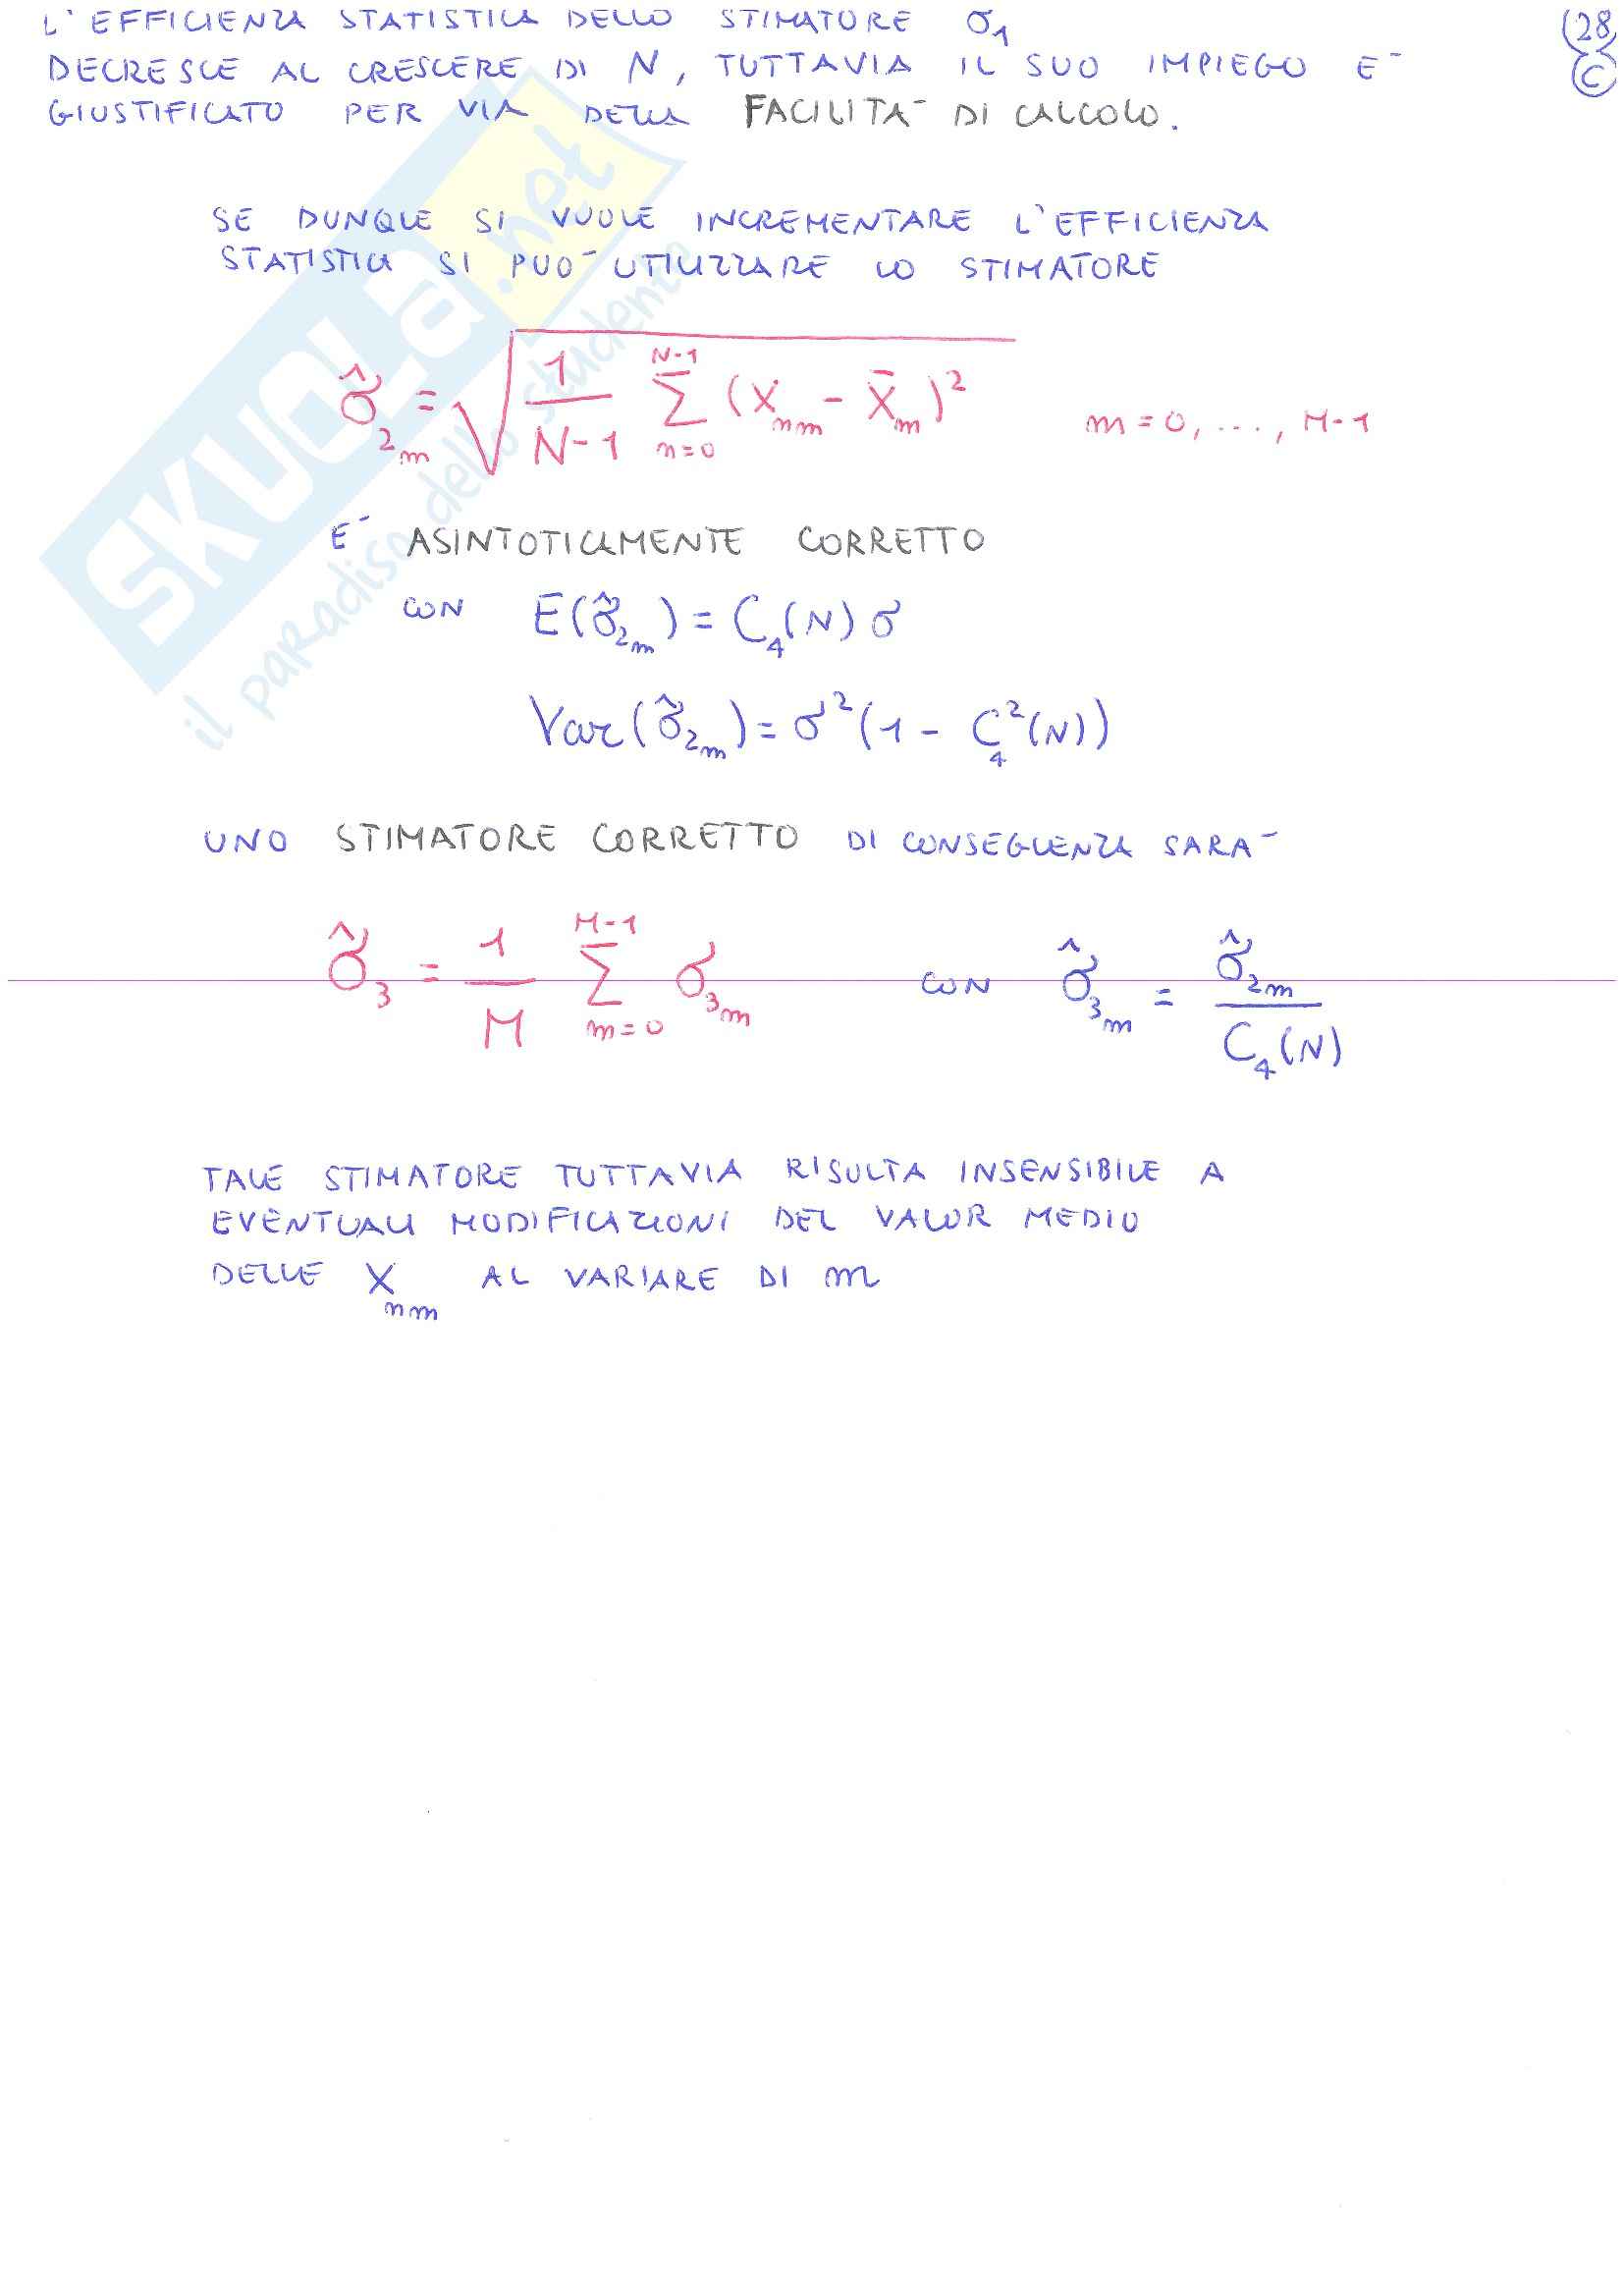 L'EFFICIENZA STATISTICA DELLO STIMATORE σ₁
DECRESCE AL CRESCERE DI N, TUTTAVIA IL SUO IMPIEGO E'
GIUSTIFICATO PER VIA DELLA FACILITA' DI CALCOLO.
28
C
SE DUNQUE SI VUOLE INCREMENTARE L'EFFICIENZA
STATISTICA SI PUO' UTILIZZARE LO STIMATORE
σ̂₂ₘ = √( 1/(N-1) Σ_{n=0}^{N-1} (Xₙₘ - X̄ₘ)² )    m = 0, ..., M-1
E' ASINTOTICAMENTE CORRETTO
CON E(σ̂₂ₘ) = C₄(N) σ
Var(σ̂₂ₘ) = σ²(1 - C₄²(N))
UNO STIMATORE CORRETTO DI CONSEGUENZA SARA'
σ̂₃ = 1/M Σ_{m=0}^{M-1} σ₃ₘ    CON σ̂₃ₘ = σ̂₂ₘ / C₄(N)
TALE STIMATORE TUTTAVIA RISULTA INSENSIBILE A
EVENTUALI MODIFICAZIONI DEL VALOR MEDIO
DELLE Xₙₘ AL VARIARE DI m
SKUOLa.net
il paradiso dello studente